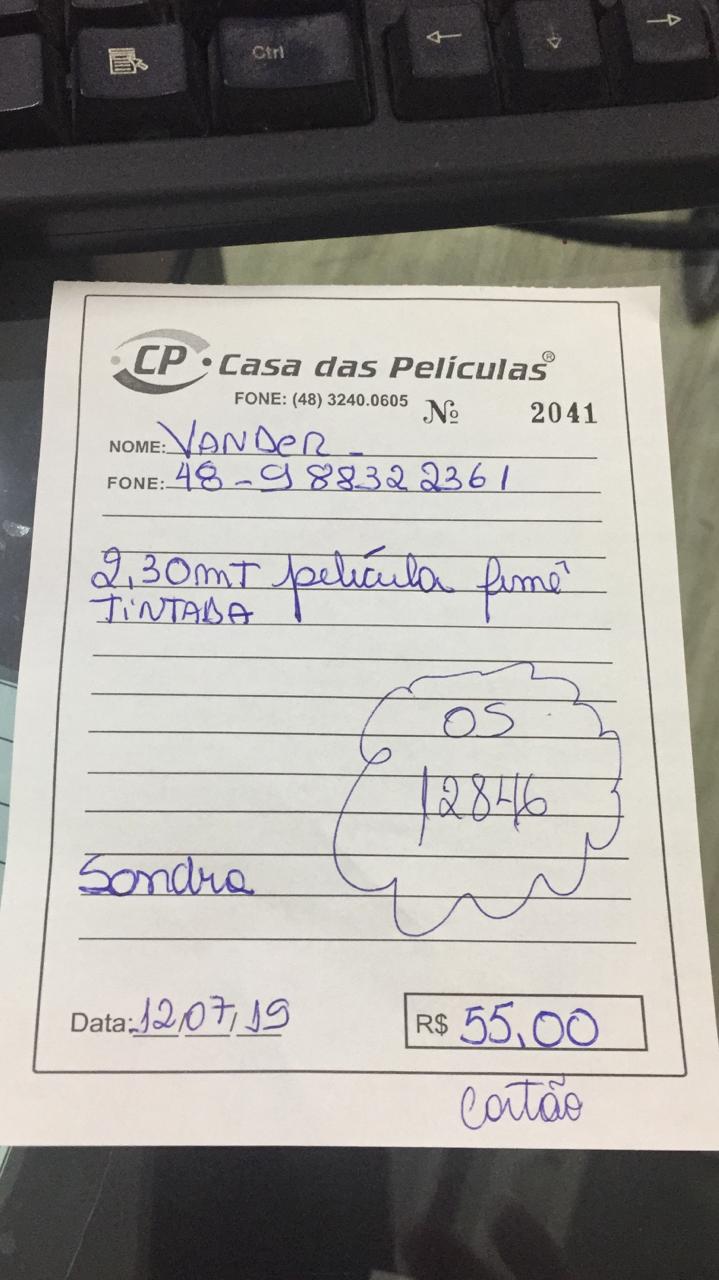 Ctrl
CP Casa das Películas®
FONE: (48) 3240.0605 Nº 2041
NOME: VANDER -
FONE: 48-988322361
2,30mT película fumê
TINTADA
OS
12846
Sandra
Data: 12/07/19 R$ 55,00
Cartão